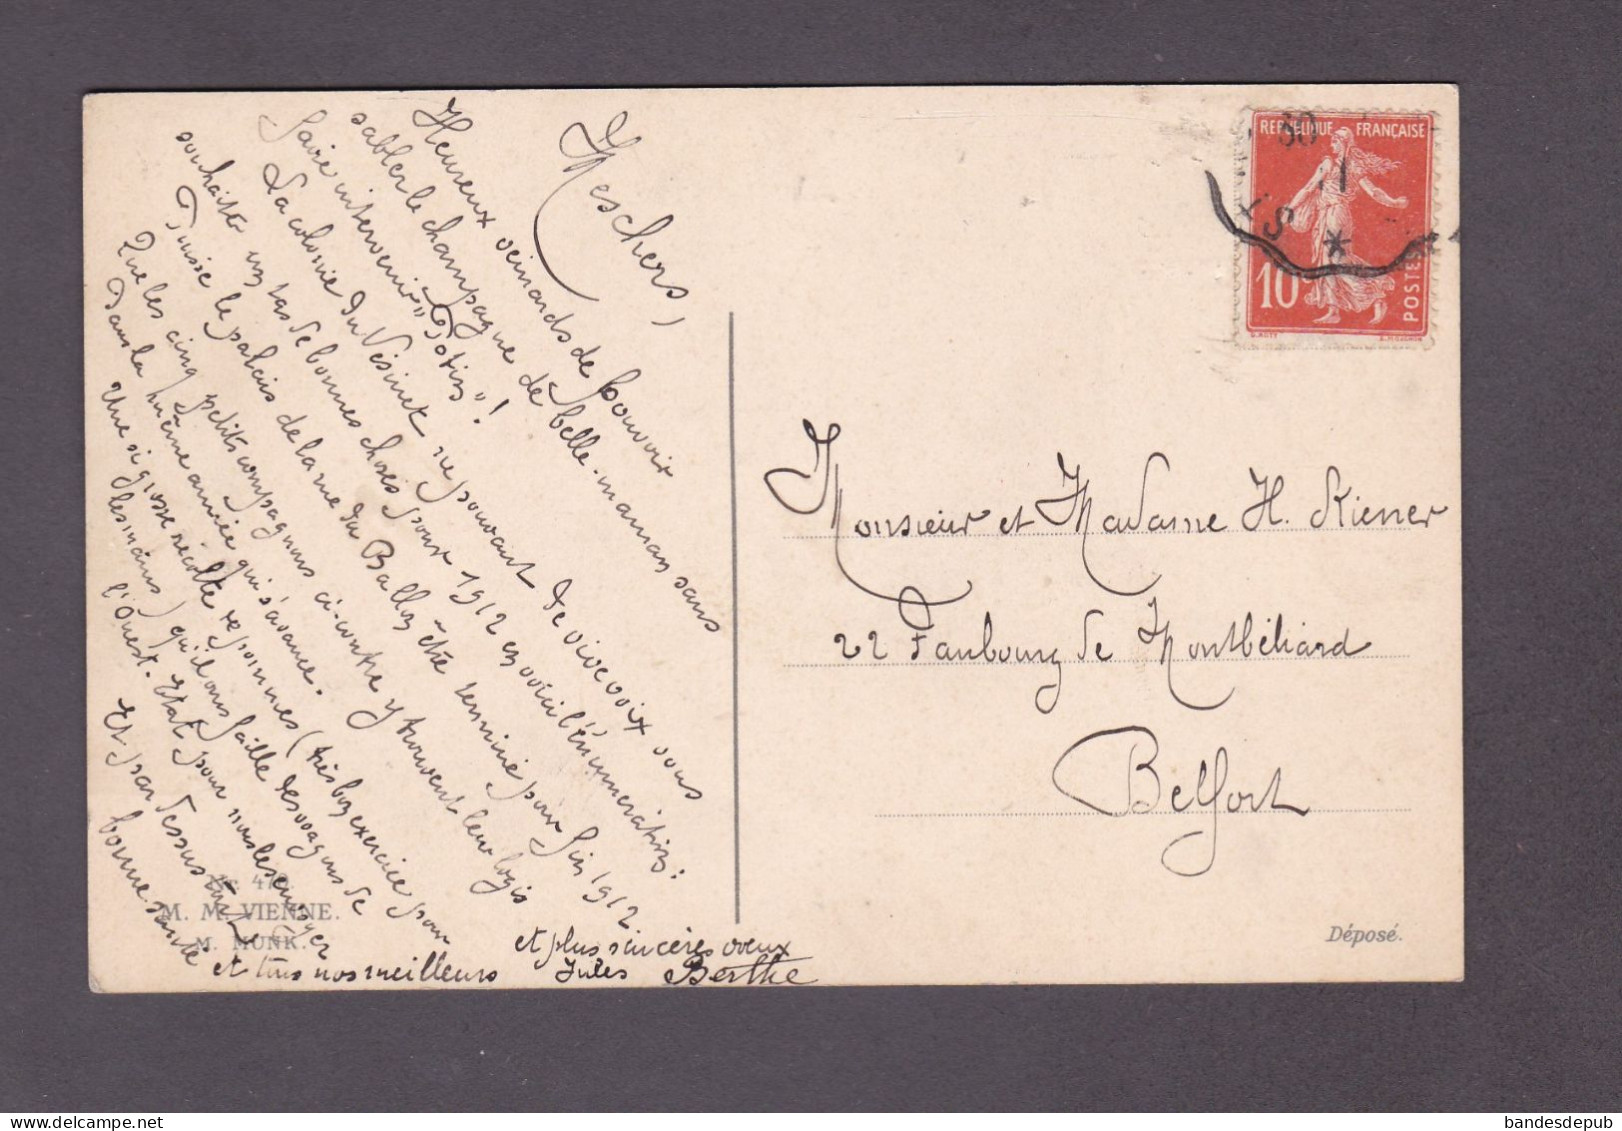 Mes chers,
Heureux veinards de pouvoir
sabler le champagne de belle-maman sans
faire intervenir "Totis" !
La colonie du Vésinet ne pouvant de vive voix vous
souhaite un tas de bonnes choses pour 1912 en voici l'énumération :
Puisse le palais de la rue du Ballon être terminé pour fin 1912
Que les cinq petits compagnons ci-contre y trouvent leur logis
Dans la même année qui s'avance.
Une si grosse récolte de pommes (très bon exercice pour
les mains) qu'il ons faille des wagons de
l'Ouest-Etat pour nous les envoyer
Et par dessus tout
bonne santé
et tous nos meilleurs
et plus sincères vœux
Jules Berthe
Nr. 479.
M. M. VIENNE.
M. MUNK.
REPUBLIQUE FRANÇAISE
10
POSTES
30
Monsieur et Madame H. Kiener
22 Faubourg de Montbéliard
Belfort
Déposé.
bandesdepub